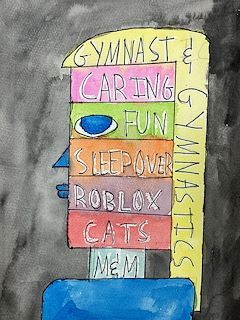 GYMNAST &
GYMNASTICS
CARING
FUN
SLEEPOVER
ROBLOX
CATS
M&M